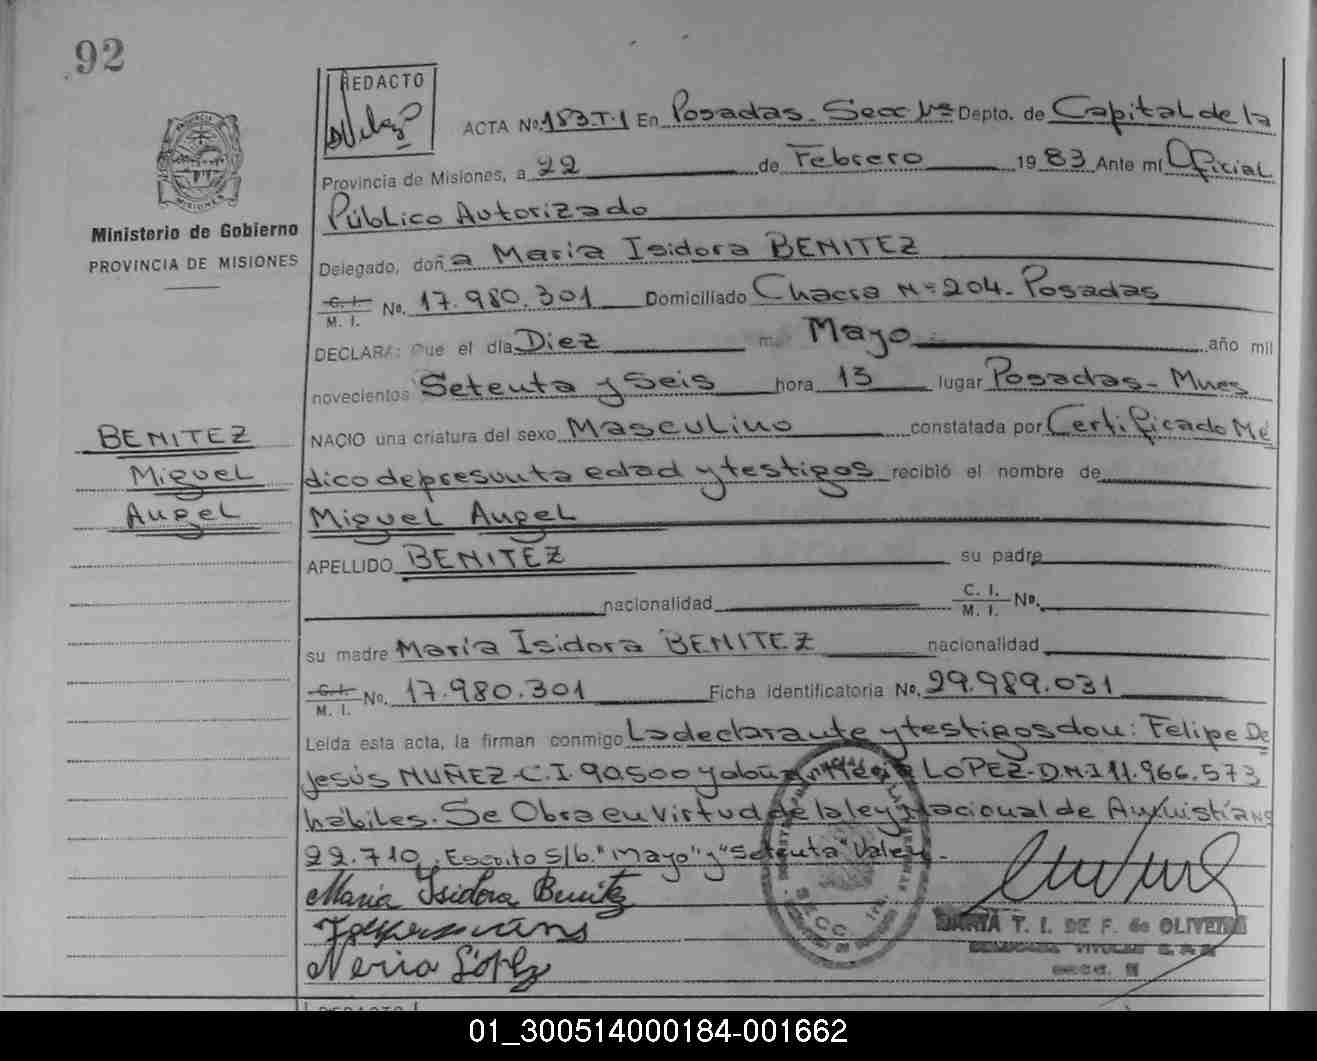 92
REDACTO
ACTA No. 183.T.1 En Posadas. Secc 1ra Depto. de Capital de la
Provincia de Misiones, a 22 de Febrero 1983 Ante mí Oficial
Público Autorizado
Ministerio de Gobierno
PROVINCIA DE MISIONES
Delegado, doña María Isidora BENITEZ
C. I. M. I. No. 17.980.301 Domiciliado Chacra Nº 204. Posadas
DECLARA: Que el día Diez Mayo año mil
novecientos Setenta y Seis hora 13 lugar Posadas - Mnes
BENITEZ
Miguel
Angel
NACIO una criatura del sexo Masculino constatada por Certificado Mé
dico de presunta edad y testigos recibió el nombre de
Miguel Angel
APELLIDO BENITEZ su padre
nacionalidad C. I. M. I. No.
su madre María Isidora BENITEZ nacionalidad
C. I. M. I. No. 17.980.301 Ficha identificatoria No. 29.989.031
Leída esta acta, la firman conmigo La declarante y testigos don: Felipe De
Jesús NUÑEZ - C.I 90.500 y doña LOPEZ - D.N.I 11.966.573
hábiles. Se Obra en virtud de la ley Nacional de Amnistía nº
22.710. Escrito S/b. "Mayo" y "Setenta" Valen.
María Isidora Benitez
Neria López
MARIA T. I. DE F. de OLIVEIRA
SECC.
01_300514000184-001662